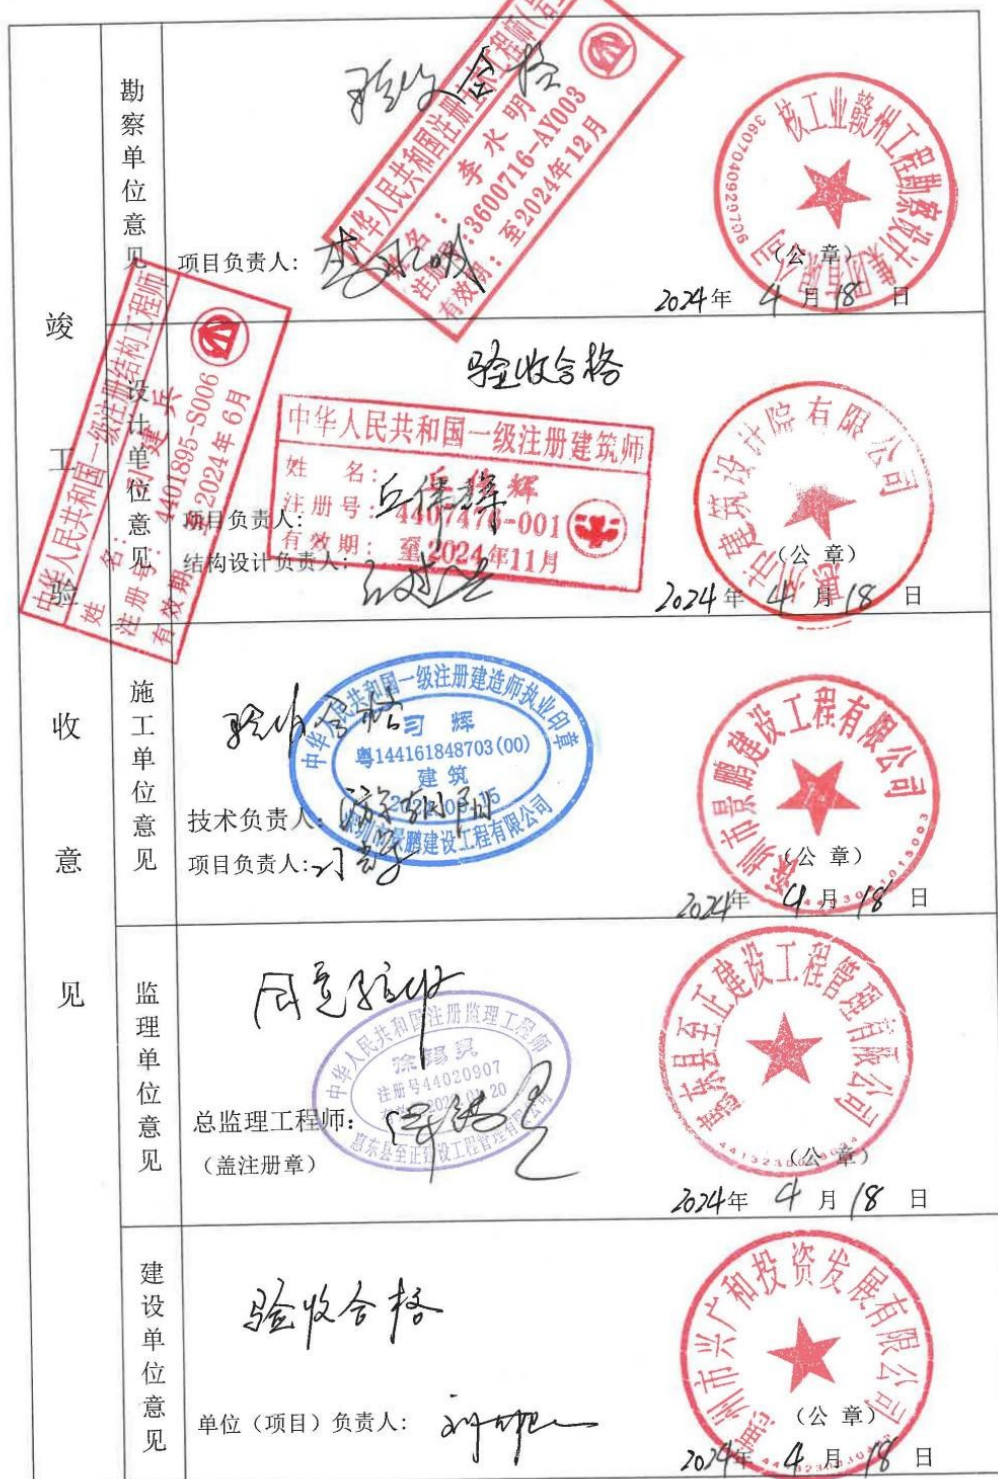 竣工验收意见
勘察单位意见
验收合格
中华人民共和国注册土木工程师(岩
姓名:李水明
注册号:3600716-AY003
有效期:至2024年12月
项目负责人:李水明
核工业赣州工程勘察设计集团有限公司
3607040920706
(公章)
2024年 4月 18日
设计单位意见
验收合格
中华人民共和国一级注册结构工程师
姓名:刘建兵
注册号:4401895-S006
有效期:至2024年6月
中华人民共和国一级注册建筑师
姓名:丘伟辉
注册号:4407473-001
有效期:至2024年11月
项目负责人:丘伟辉
结构设计负责人:刘建兵
惠州市建筑设计院有限公司
(公章)
2024年 4月 18日
施工单位意见
验收合格
中华人民共和国一级注册建造师执业印章
习辉
粤144161848703(00)
建筑
深圳市景鹏建设工程有限公司
技术负责人:
项目负责人:习辉
深圳市景鹏建设工程有限公司
(公章)
2024年 4月 18日
监理单位意见
同意验收
中华人民共和国注册监理工程师
徐锡灵
注册号44020907
惠东县至正建设工程管理有限公司
总监理工程师:
(盖注册章)
惠东县至正建设工程管理有限公司
(公章)
2024年 4月 18日
建设单位意见
验收合格
单位(项目)负责人:
惠州市兴广和投资发展有限公司
(公章)
2024年 4月 18日